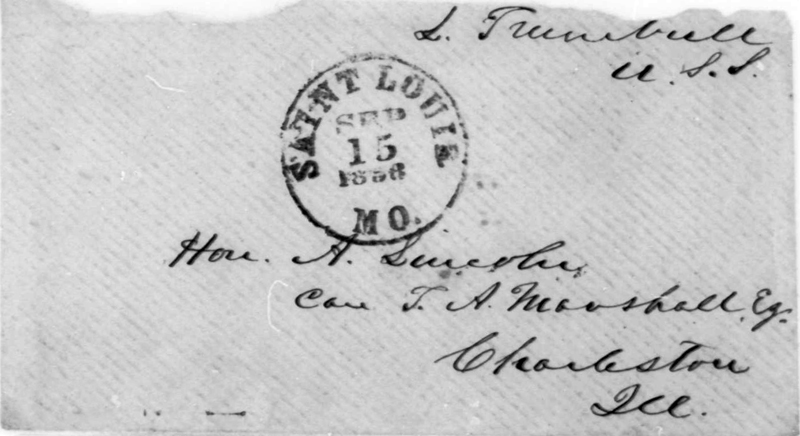 L. Trumbull
U. S. S.
SAINT LOUIS
SEP
15
1858
MO.
Hon. A. Lincoln
Care T. A. Marshall, Esq.
Charleston
Ill.